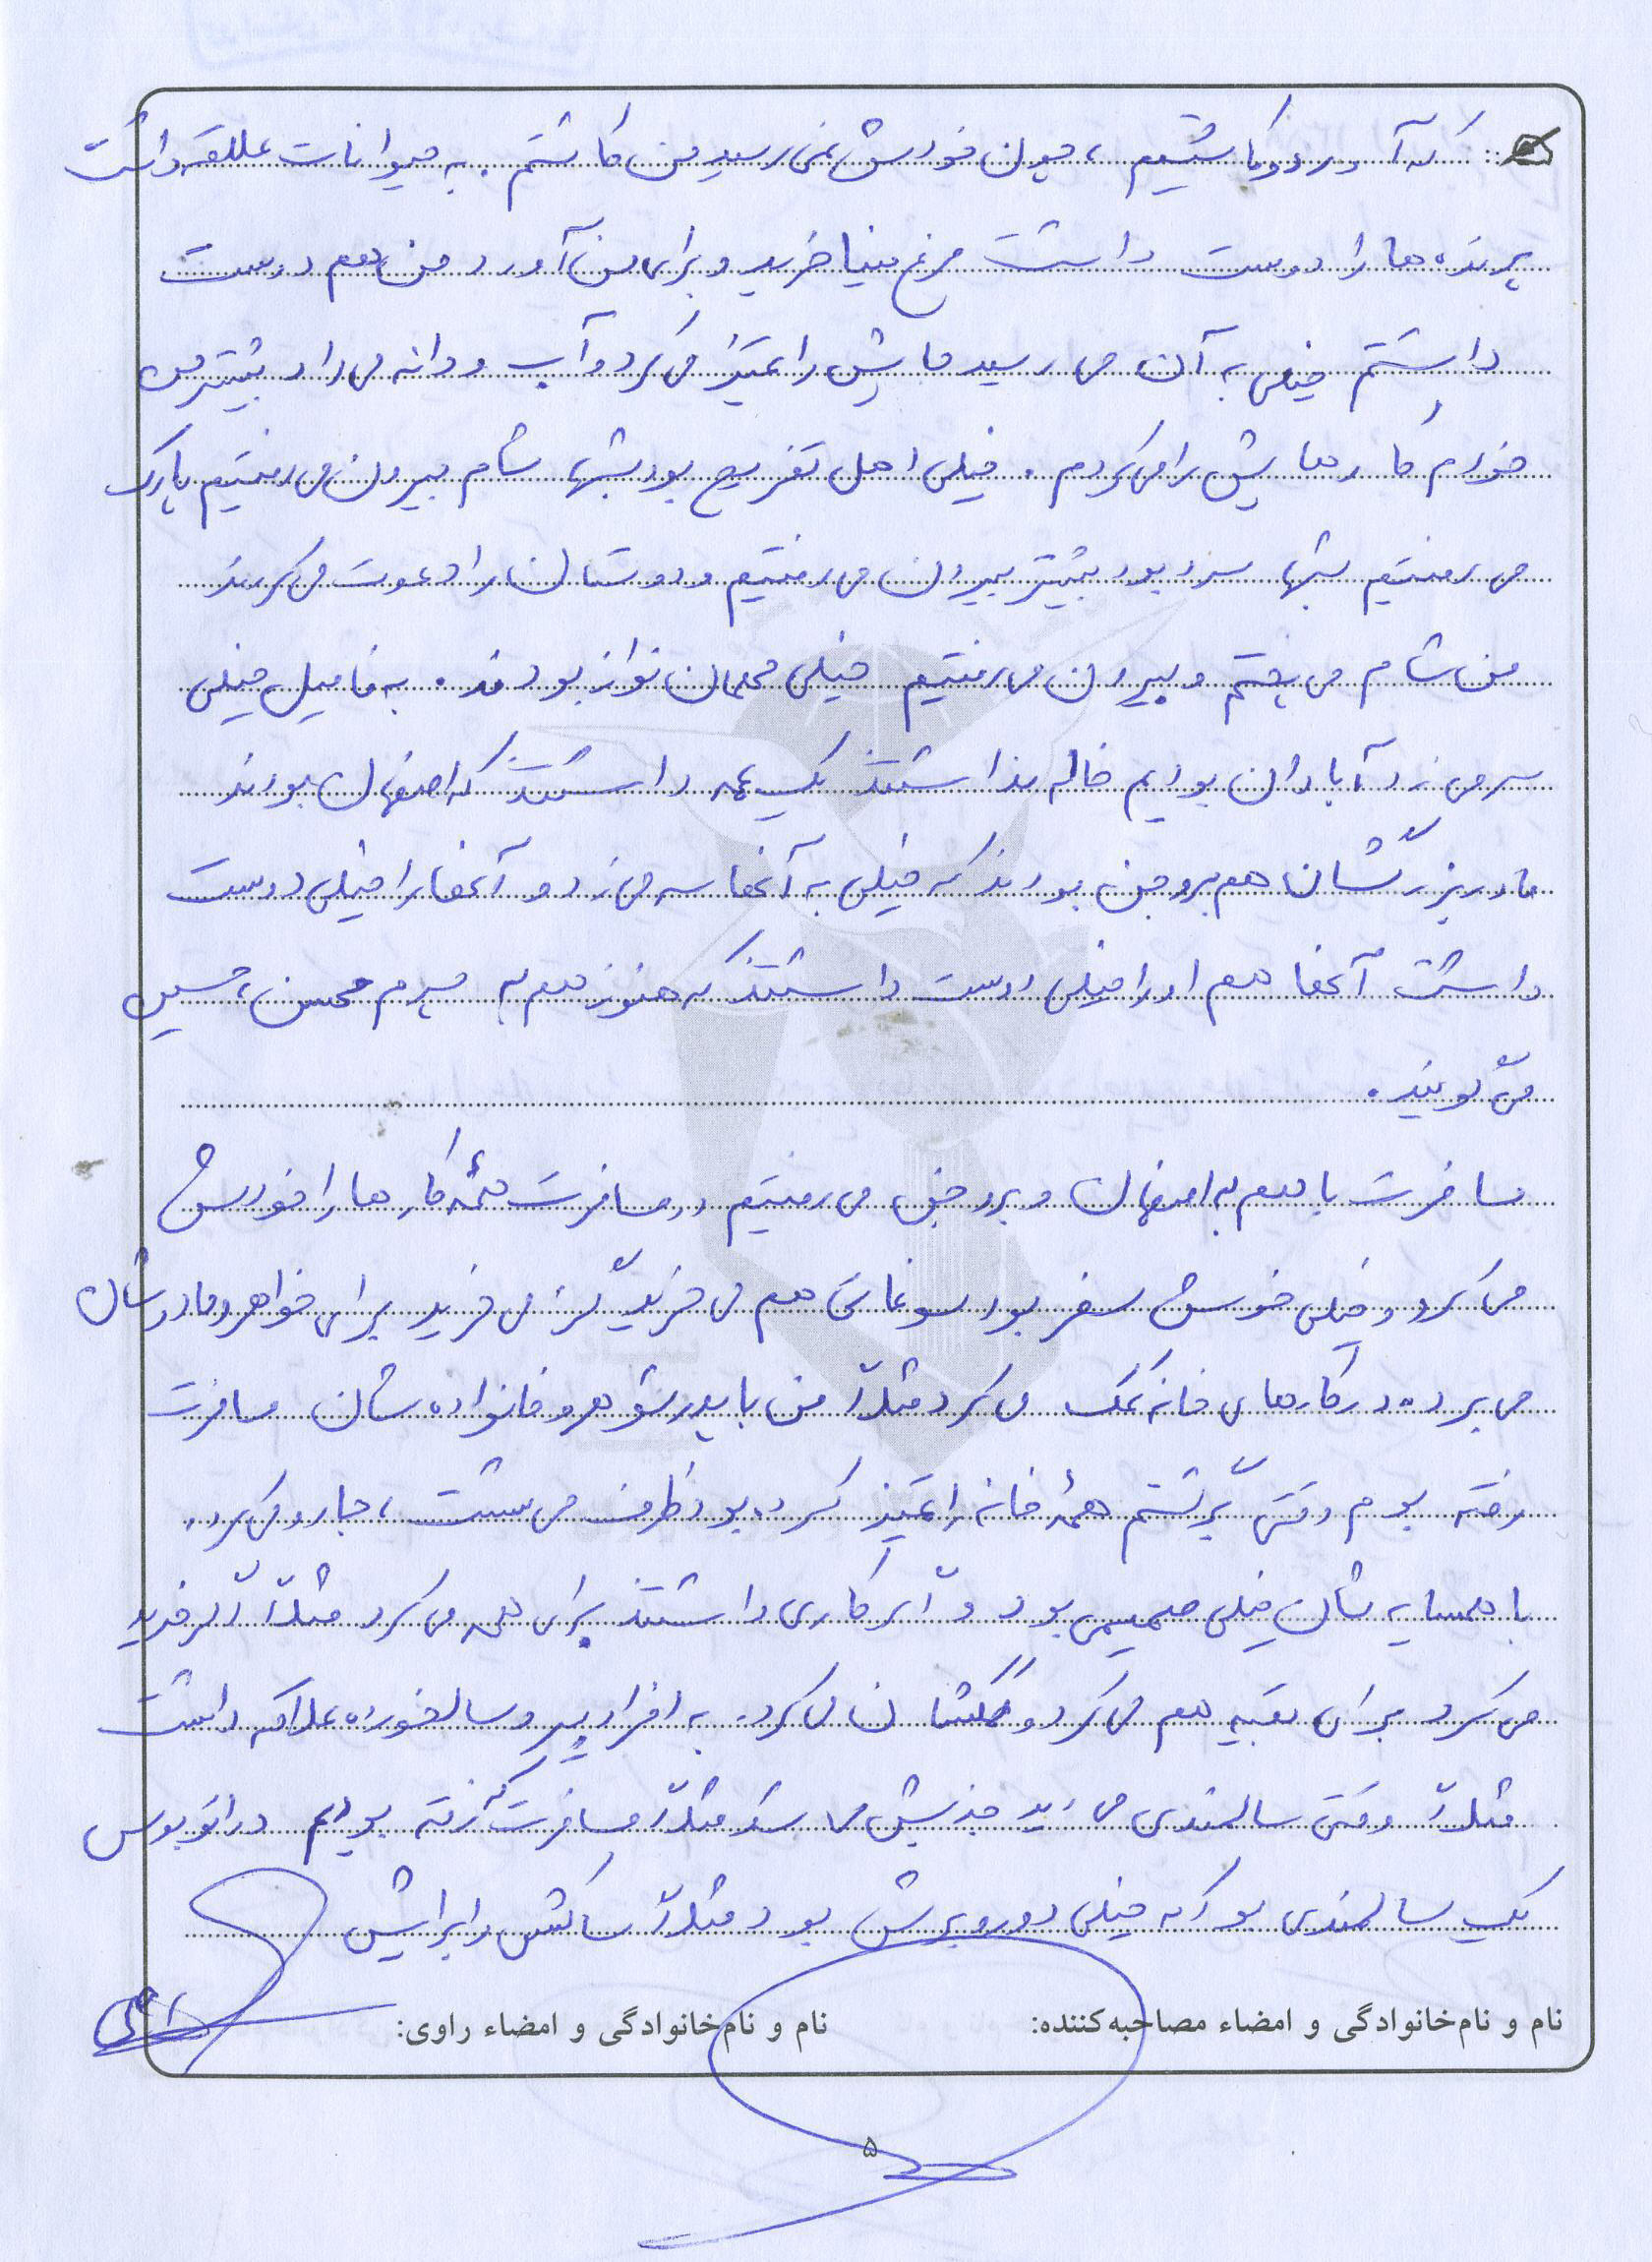 که آورد و کاشتیم، چون خودش نمی رسید من کاشتم. به حیوانات علاقه داشت
پرنده ها را دوست داشت مرغ مینا خرید و برای من آورد من هم دوست
داشتم خیلی به آن می رسید جایش را تمیز می کرد و آب و دانه می داد بیشتر من
خودم کارهایش را می کردم. خیلی اهل تفریح بود شبها شام بیرون می رفتیم پارک
می رفتیم شبها سرد بود بیشتر بیرون می رفتیم و دوستانشان را دعوت می کردند
من شام می پختم و بیرون می رفتیم خیلی مهمان نواز بودند. به فامیل خیلی
سر می زد آبادان بودیم خاله نداشتند یک عمه داشتند که اصفهان بودند
مادربزرگشان هم بروجن بودند که خیلی به آنها سر می زد و آنها را خیلی دوست
داشت آنها هم او را خیلی دوست داشتند که هنوز هم به پسرم محسن، حسین
می گویند.
مسافرت با هم به اصفهان و بروجن می رفتیم در مسافرت همهٔ کارها را خودش
می کرد و خیلی خوش سفر بود سوغاتی هم می خرید گز می خرید برای خواهر و مادرشان
می برد. در کارهای خانه کمک می کرد مثلاً من با پدرشوهر و خانواده شان مسافرت
رفته بودم وقتی برگشتم همهٔ خانه را تمیز کرده بود ظرف می شست، جارو می کرد.
با همسایه شان خیلی صمیمی بود و اگر کاری داشتند برای همه می کرد مثلاً اگر خرید
می کرد برای بقیه هم می کرد و کمکشان می کرد. به افراد پیر و سالخورده علاقه داشت
مثلاً وقتی سالمندی می دید جذبش می شد مثلاً مسافرت که رفته بودیم در اتوبوس
یک سالمندی بود که خیلی دور و برش بود مثلاً ساکش را برایش
نام و نام‌خانوادگی و امضاء مصاحبه‌کننده: نام و نام‌خانوادگی و امضاء راوی:
۵